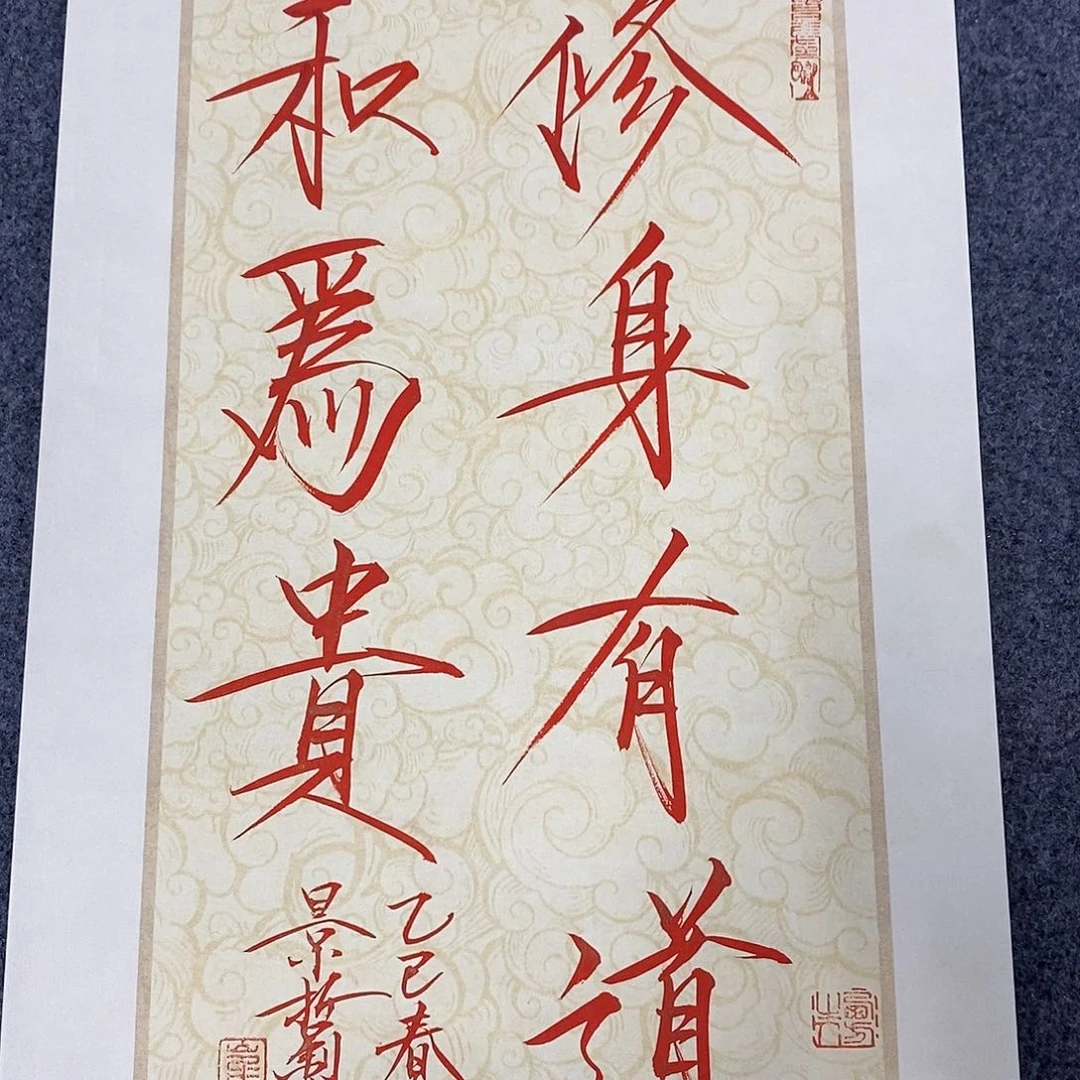 修身有道
和為貴
乙巳春
景哲